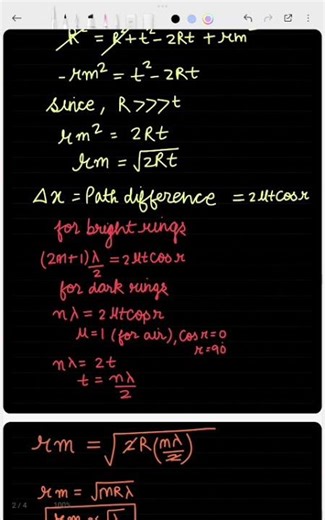 R² = R² + t² - 2Rt + rm²
- rm² = t² - 2Rt
since, R >>> t
rm² = 2Rt
rm = √2Rt
Δx = Path difference = 2μtcosr
for bright rings
(2m+1)λ/2 = 2μtcosr
for dark rings
nλ = 2μtcosr
μ=1 (for air), cosr=0
r=90
nλ = 2t
t = nλ/2
rm = √2R(mλ/2)
rm = √mRλ
2 / 4